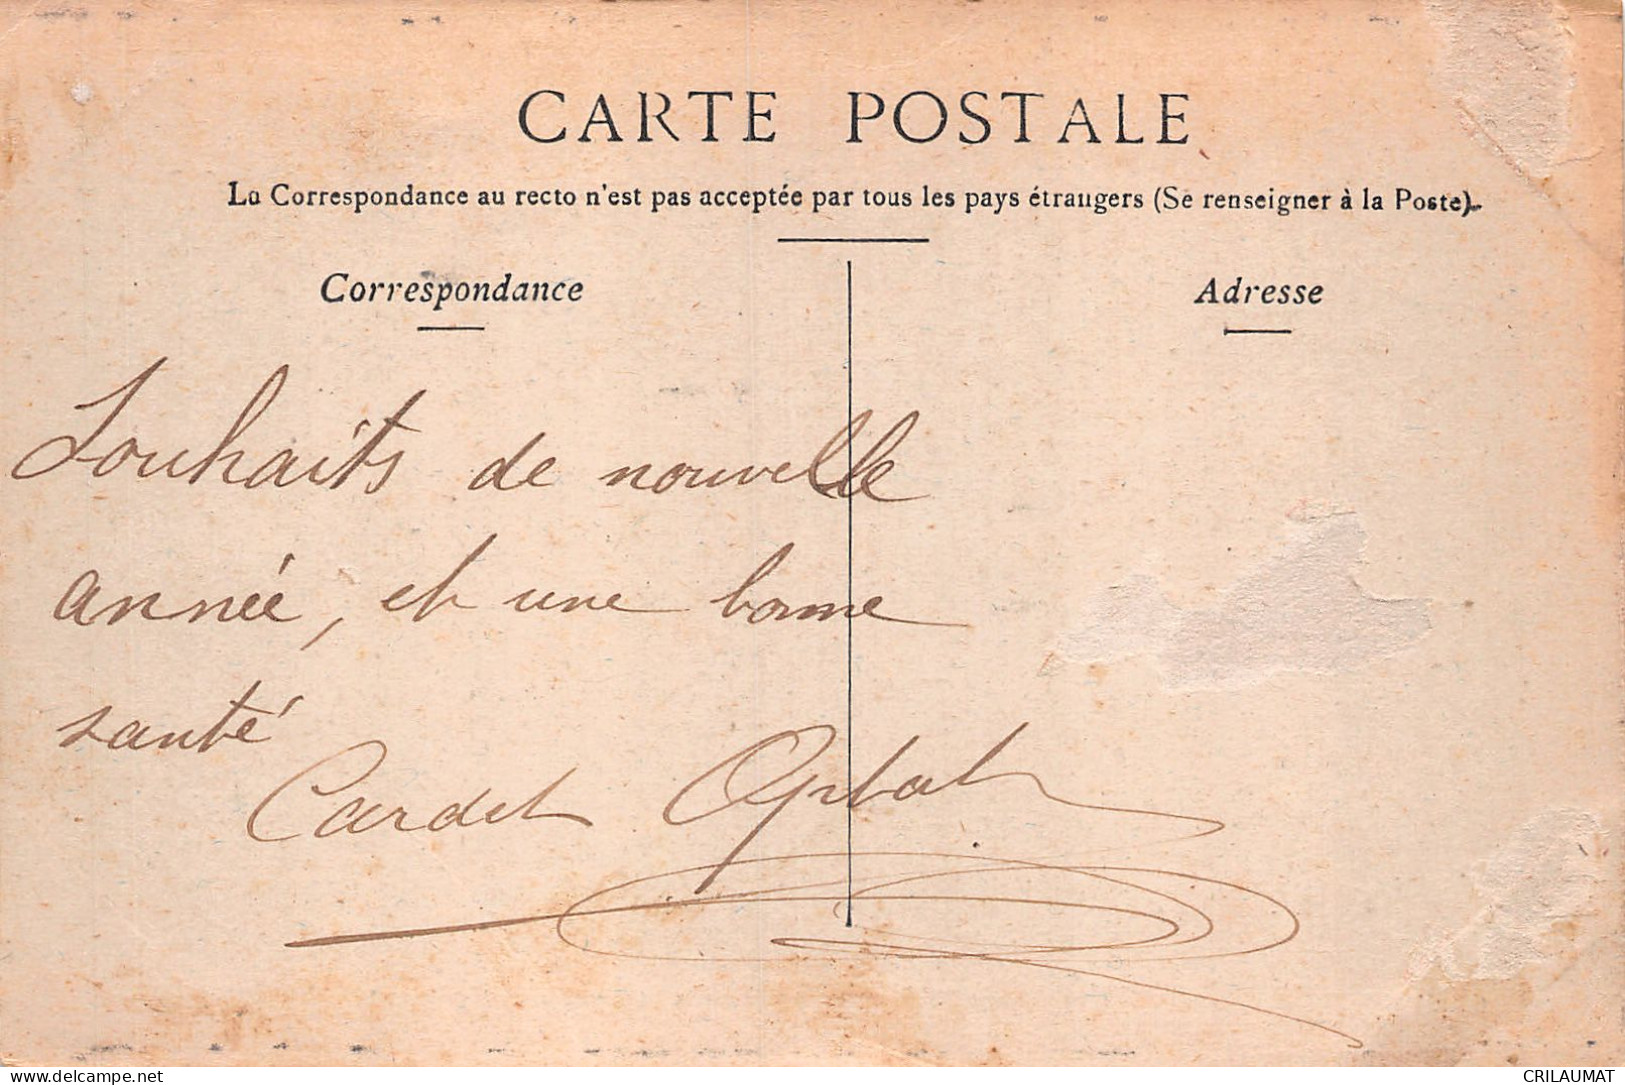 CARTE POSTALE
La Correspondance au recto n'est pas acceptée par tous les pays étrangers (Se renseigner à la Poste).
Correspondance
Adresse
Souhaits de nouvelle
année, et une bonne
santé
Cardet
delcampe.net
CRILAUMAT